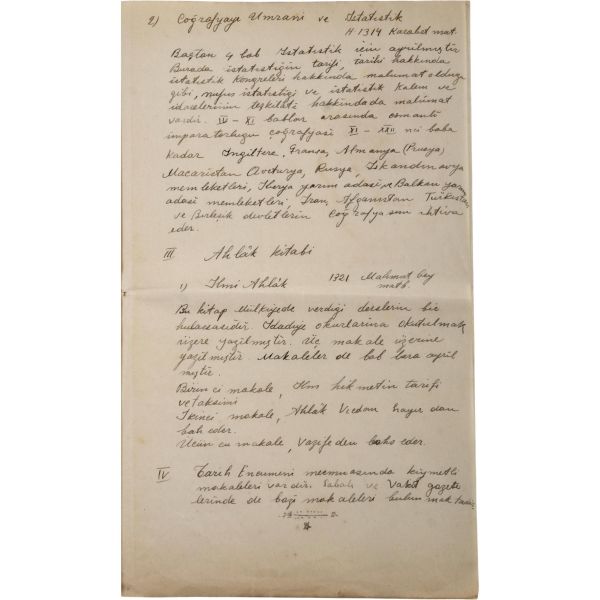 2) Coğrafyayı Umrani ve İstatistik
H 1314 Karabet mat.
Baştan 4 bab İstatistik için ayrılmıştır
Burada istatistiğin tarifi, tarihi hakkında
istatistik Kongreleri hakkında malumat olduğu
gibi, nufus istatistiği ve istatistik Kalem ve
idarelerinin teşkilâtı hakkındada malûmat
vardır. IV – XI bablar arasında osmanlı
imparatorluğu çoğrafyası XI – XXII nci baba
kadar İngiltere, Fransa, Almanya (Prusya)
Macaristan Avcturya, Rusya, İskandinavya
memleketleri, İberya yarım adası, ve Balkan yarım
adası memleketleri, İran, Afganistan Türkistan
ve Birleşik devletlerin Coğrafyasını ihtiva
eder.
III Ahlâk kitabı
1) İlmi Ahlâk 1321 Mahmut bey
matb.
Bu kitap Mülkiyede verdiği derslerin bir
hulasasıdır. İdadiye okurlarına okutulmak
üzere yazılmıştır. Üç makale üzerine
yazılmıştır. Makaleler de bab lara ayrıl
mıştır.
Birinci makale, İlmi hikmetin tarifi
ve taksimi
İkinci makale, Ahlâk Vicdan hayır dan
bah eder.
Ucün cu makale, Vazife den bahs eder.
IV Tarih Encumeni mecmuasında kıymetli
makaleleri vardır. Sabah ve Vakit gazete
lerinde de bazı makaleleri bulunmaktadır